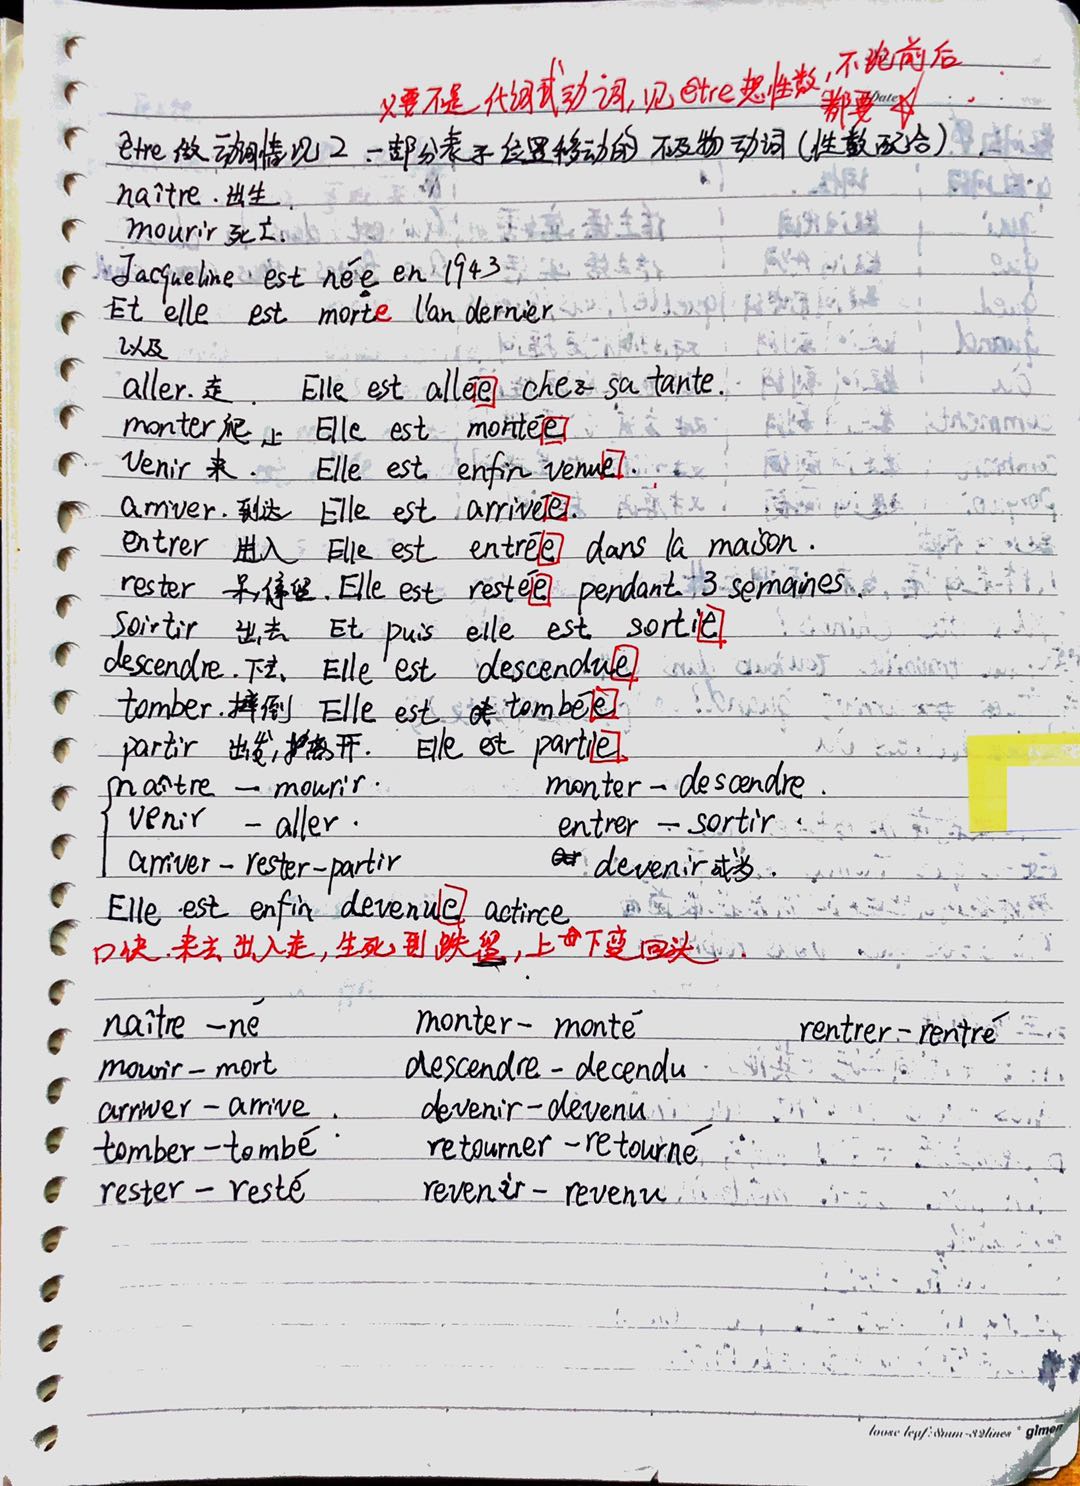 只要不是代词式动词,见être想性数,不论前后
都要☆
Date
être做动词情况2 一部分表示位置移动的不及物动词(性数配合).
naître.出生.
mourir死亡.
Jacqueline est née en 1943
Et elle est morte l'an dernier
以及
aller.走. Elle est allée chez sa tante.
monter爬上 Elle est montée
venir来. Elle est enfin venue.
arriver.到达 Elle est arrivée.
entrer 出入 Elle est entrée dans la maison.
rester 呆,停留. Elle est restée pendant 3 semaines.
soirtir 出去 Et puis elle est sortie
descendre.下去. Elle est descendue
tomber.摔倒 Elle est tombée
partir 出发,离开. Elle est partie
naître – mourir. monter – descendre.
venir – aller. entrer – sortir.
arriver – rester – partir devenir成为.
Elle est enfin devenue actirce
口快.来去出入走,生死到跌留,上下变回头.
naître – né monter – monté rentrer – rentré
mourir – mort descendre – decendu
arriver – arrive. devenir – devenu
tomber – tombé retourner – retourné
rester – resté revenir – revenu
loose leaf:8mm-32lines